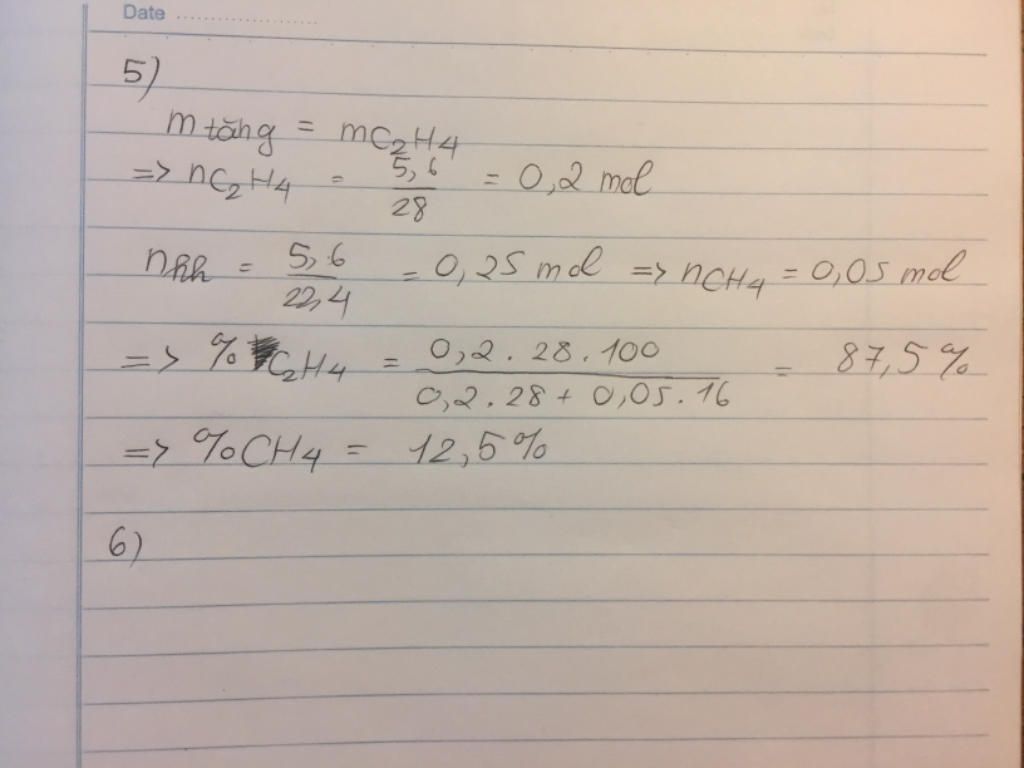 Date ....................
5)
m tăng = mC₂H₄
=> nC₂H₄ = 5,6/28 = 0,2 mol
nhh = 5,6/22,4 = 0,25 mol => nCH₄ = 0,05 mol
=> % C₂H₄ = 0,2.28.100/0,2.28 + 0,05.16 = 87,5%
=> %CH₄ = 12,5%
6)